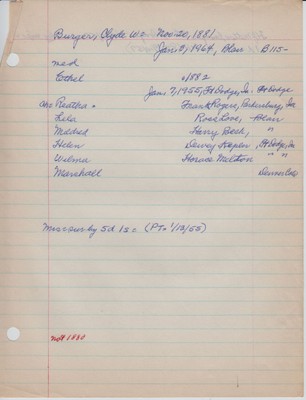 Burgess, Clyde W. Nov. 20, 1881
Jan. 9, 1964, Blair B115-
med
Ethel 1882
Jan. 7, 1955, Ft Dodge, Ia. Ft Dodge
chr Reatha Frank Rogers, Ia
Lela Ross Love, Blair
Mildred Harry Beck, "
Helen Dewey Kaplen, Ft Dodge, Ia
Wilma Horace Milton " "
Marshall Denver Colo
by 5d 1s (PT. 1/13/55)
not 1880